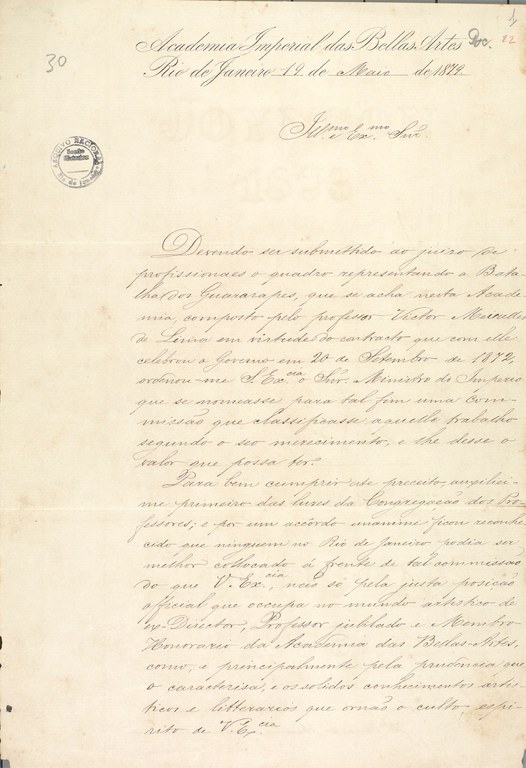 30
Doc. 22
Academia Imperial das Bellas Artes
Rio de Janeiro 19 de Maio de 1879
Illmo e Exmo Snr
ARQUIVO NACIONAL
Rio de Janeiro
Devendo ser submettido ao juizo de
profissionaes o quadro representando a Bata-
lha dos Guararapes, que se acha nesta Acade-
mia, composto pelo professor Victor Meirelles
de Lima em virtude do contracto que com elle
celebrou o Governo em 20 de Setembro de 1872,
ordenou-me S. Excia o Snr. Ministro do Imperio
que se nomeasse para tal fim uma com-
missão que classificasse aquelle trabalho
segundo o seo merecimento, e lhe desse o
valor que possa ter.
Para bem cumprir este preceito, auxiliei-
me primeiro das luzes da Congregação dos Pro-
fessores; e por um accôrdo unanime ficou reconhe-
cido que ninguem no Rio de Janeiro podia ser
melhor collocado á frente de tal commissão
do que V. Excia, não só pela justa posição
official que occupa no mundo artistico de
ex-Director, Professor jubilado e Membro
Honorario da Academia das Bellas-Artes,
como, e principalmente pela prudencia que
o caracterisa, e os solidos conhecimentos artis-
ticos e litterarios que ornão o culto espi-
rito de V. Excia